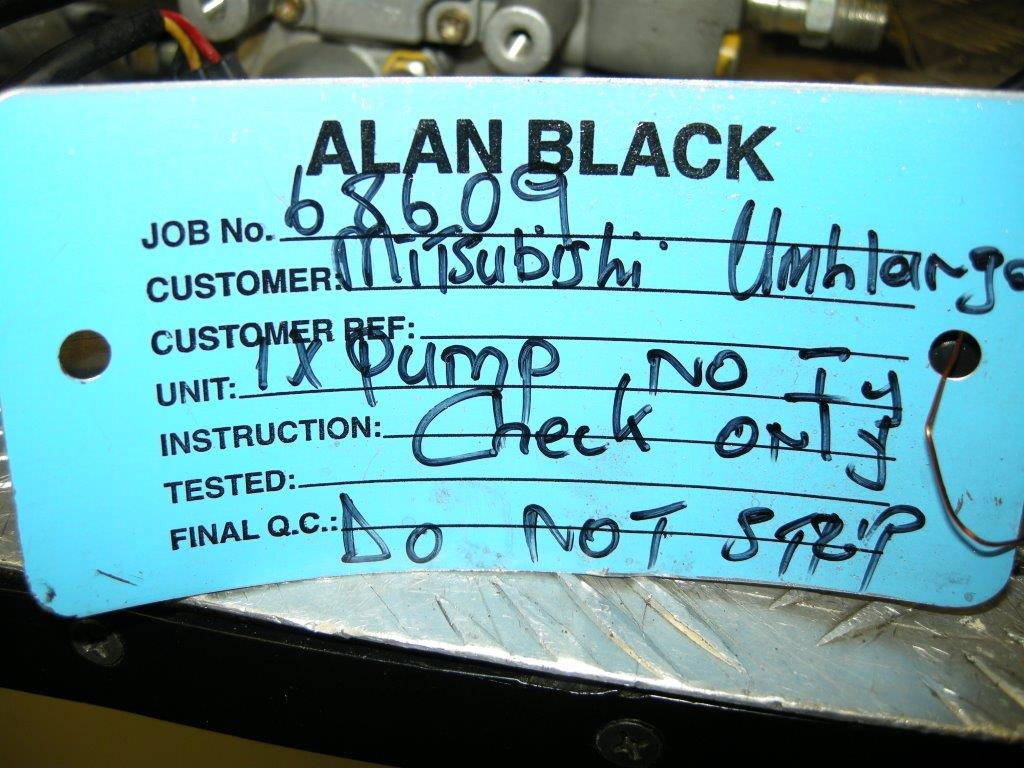 ALAN BLACK
JOB No. 68609
CUSTOMER: Mitsubishi Umhlanga
CUSTOMER REF:
UNIT: 1X Pump NO
INSTRUCTION: Check only
TESTED:
FINAL Q.C.: Do NOT STRIP